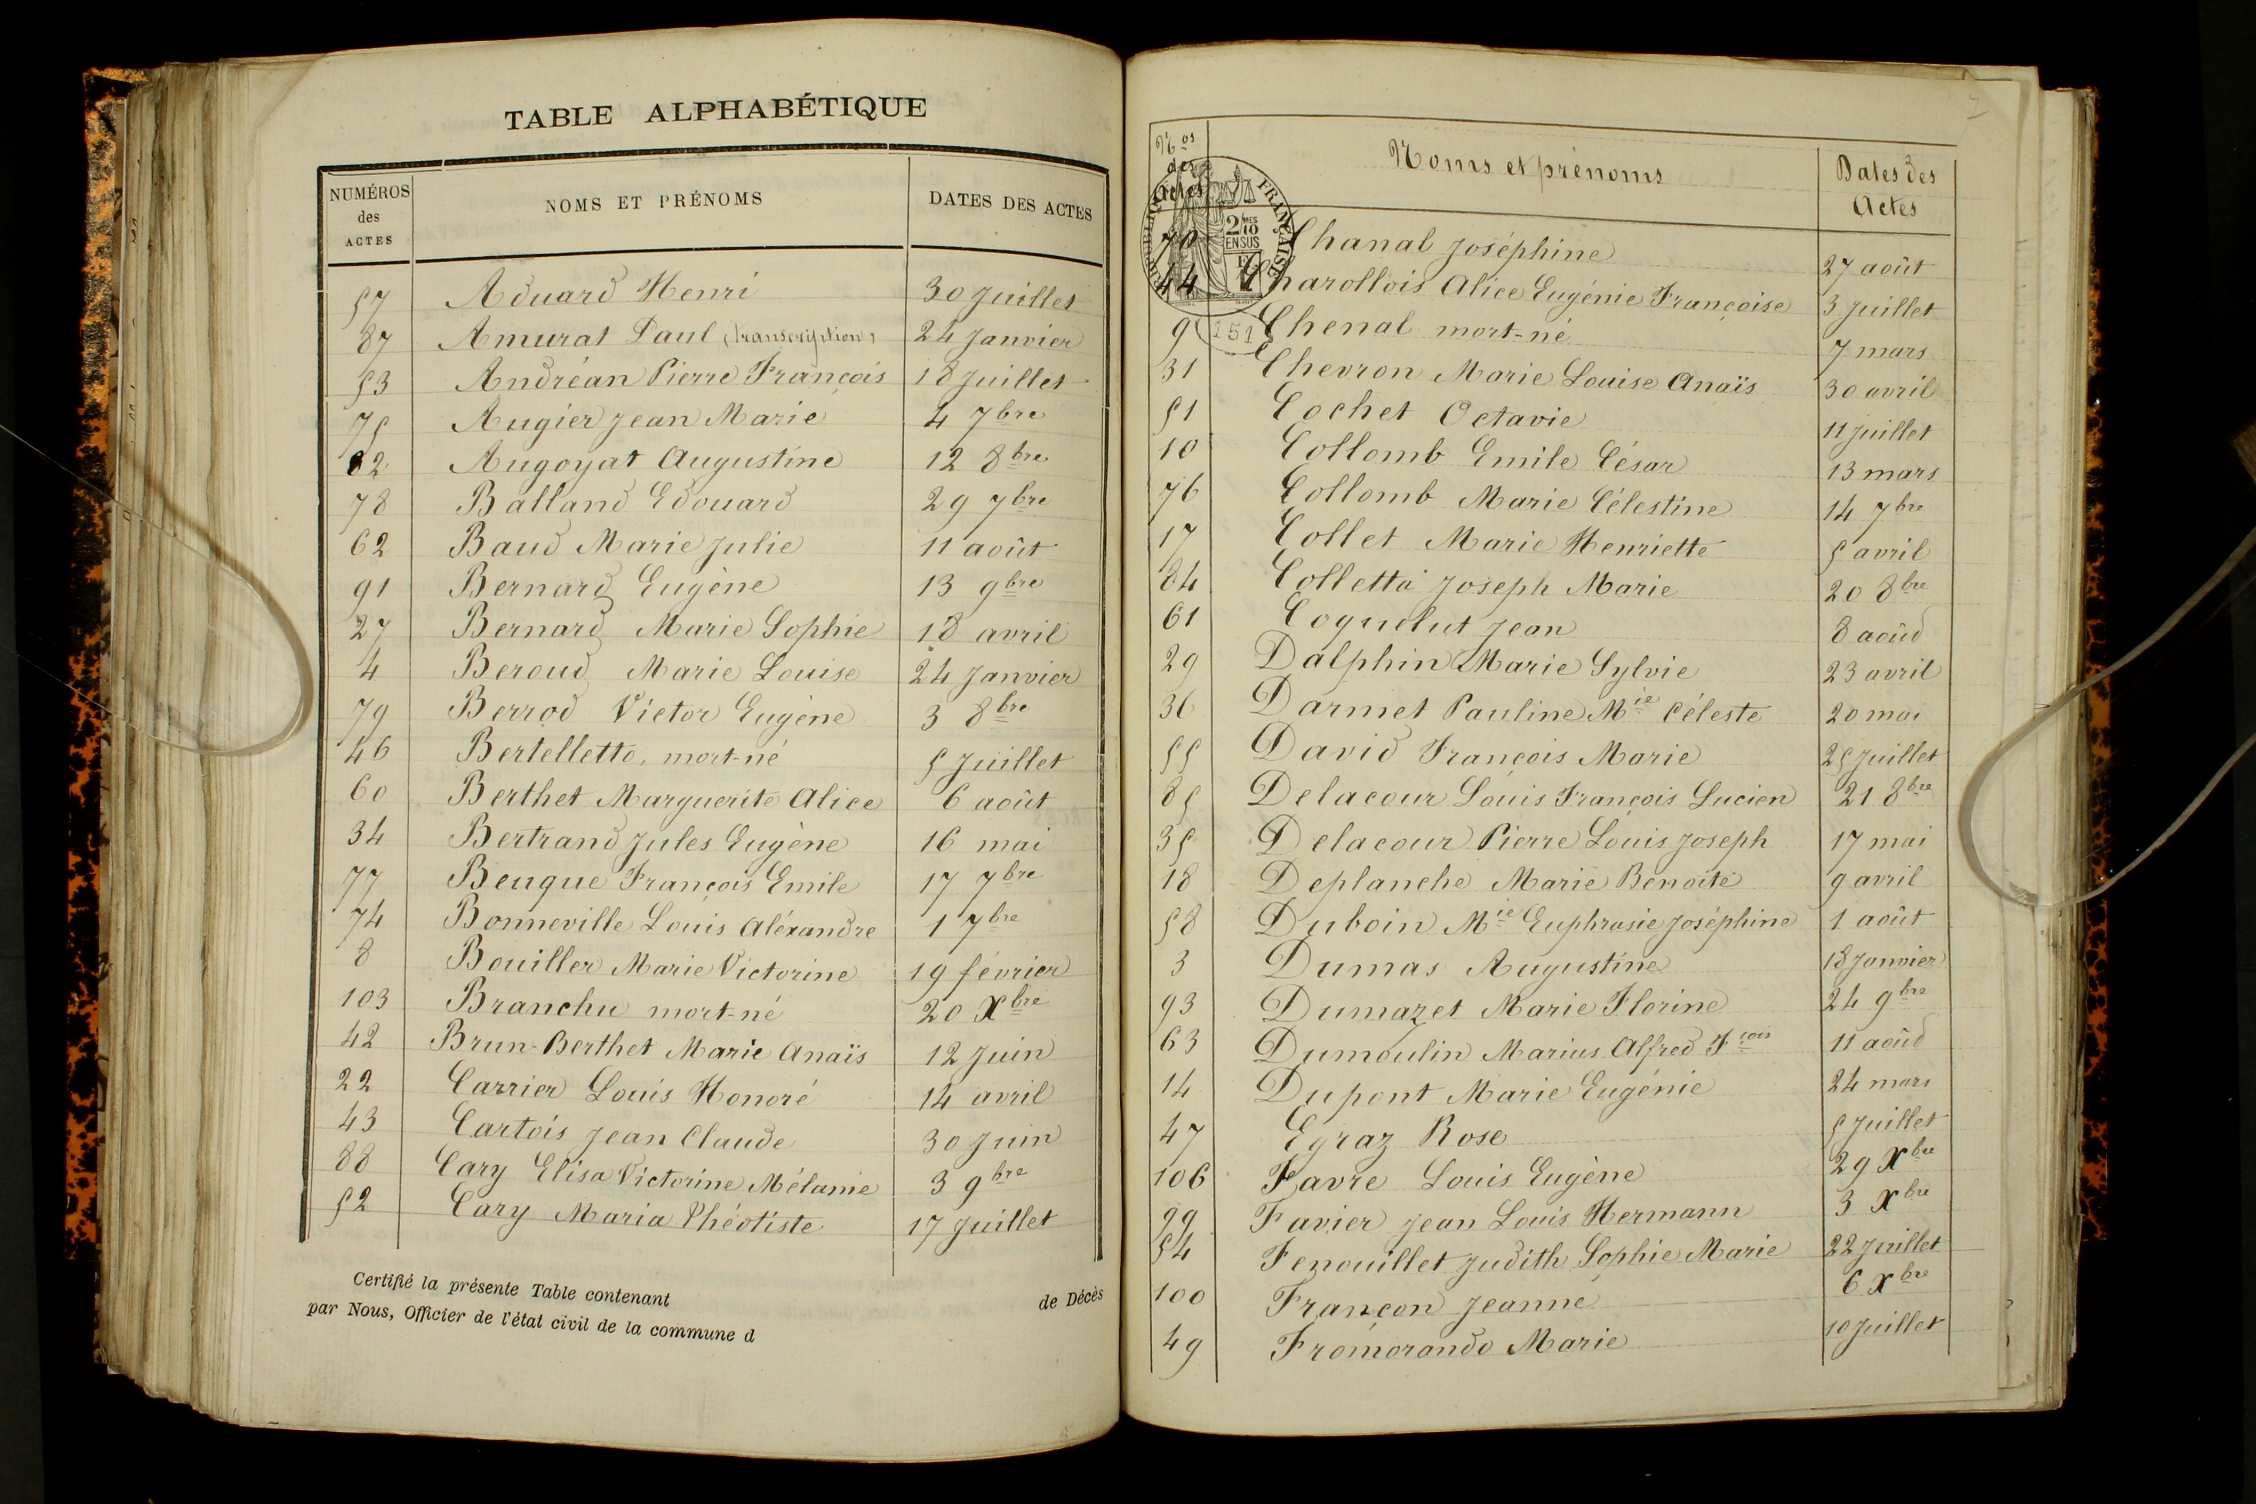 TABLE ALPHABÉTIQUE
NUMÉROS des ACTES NOMS ET PRÉNOMS DATES DES ACTES
57 Aduard Henri 30 Juillet
87 Amurat Paul (transcription) 24 Janvier
53 Andréan Pierre François 18 Juillet
75 Augier Jean Marie 4 7bre
82 Augoyat Augustine 12 8bre
78 Balland Edouard 29 7bre
62 Baud Marie Julie 11 août
91 Bernard Eugène 13 9bre
27 Bernard Marie Sophie 18 avril
4 Beroud Marie Louise 24 Janvier
79 Berrod Victor Eugène 3 8bre
46 Bertelletto, mort-né 5 Juillet
60 Berthet Marguerite Alice 6 août
34 Bertrand Jules Eugène 16 mai
77 Beuque François Emile 17 7bre
74 Bonneville Louis Aléxandre 1 7bre
8 Bouiller Marie Victorine 19 février
103 Branchu mort-né 20 Xbre
42 Brun-Berthet Marie Anaïs 12 Juin
22 Carrier Louis Honoré 14 avril
43 Cartois Jean Claude 30 Juin
88 Cary Elisa Victorine Mélanie 3 9bre
52 Cary Maria Phéotiste 17 Juillet
Certifié la présente Table contenant de Décès
par Nous, Officier de l'état civil de la commune d
Nos des Actes Noms et prénoms Dates des Actes
RÉPUBLIQUE FRANÇAISE
2/10 MES
EN SUS
151
70 Chanal Joséphine 27 août
44 Charollois Alice Eugénie Françoise 3 Juillet
9 Chenal mort-né 7 mars
31 Chevron Marie Louise Anaïs 30 avril
51 Cochet Octavie 11 Juillet
10 Collomb Emile César 13 mars
76 Collomb Marie Célestine 14 7bre
17 Collet Marie Henriette 5 avril
84 Colletta Joseph Marie 20 8bre
61 Coquelut Jean 8 aoûd
29 Dalphin Marie Sylvie 23 avril
36 Darmet Pauline Mie Céleste 20 mai
55 David François Marie 25 Juillet
85 Delacour Louis François Lucien 21 8bre
35 Delacour Pierre Louis Joseph 17 mai
18 Deplanche Marie Benoite 9 avril
58 Duboin Mie Euphrasie Joséphine 1 août
3 Dumas Augustine 18 Janvier
93 Dumazet Marie Florine 24 9bre
63 Dumoulin Marius Alfred Fçois 11 aoûd
14 Dupont Marie Eugénie 24 mars
47 Egraz Rose 5 Juillet
106 Favre Louis Eugène 29 Xbre
99 Favier Jean Louis Hermann 3 Xbre
54 Fenouillet Judith Sophie Marie 22 Juillet
100 Françon Jeanne 6 Xbre
49 Fromorando Marie 10 Juillet